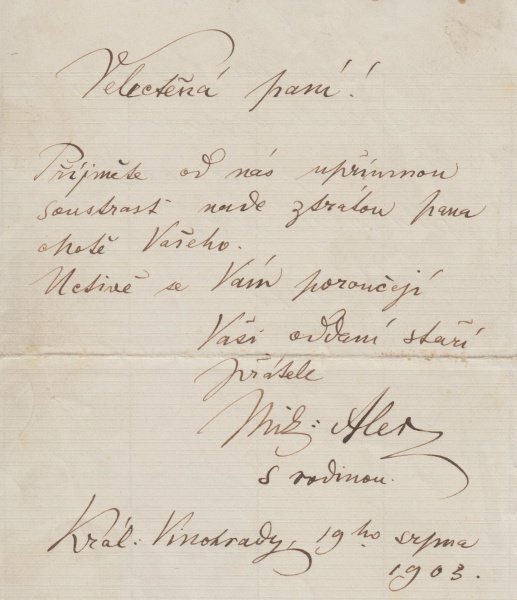 Velectěná paní!
Přijměte od nás upřímnou
soustrast nade ztrátou pana
chotě Vašeho.
Uctivě se Vám poroučejí
Vaši oddaní staří
přátelé
Mik: Aleš
s rodinou.
Král. Vinohrady, 19ho srpna
1903.